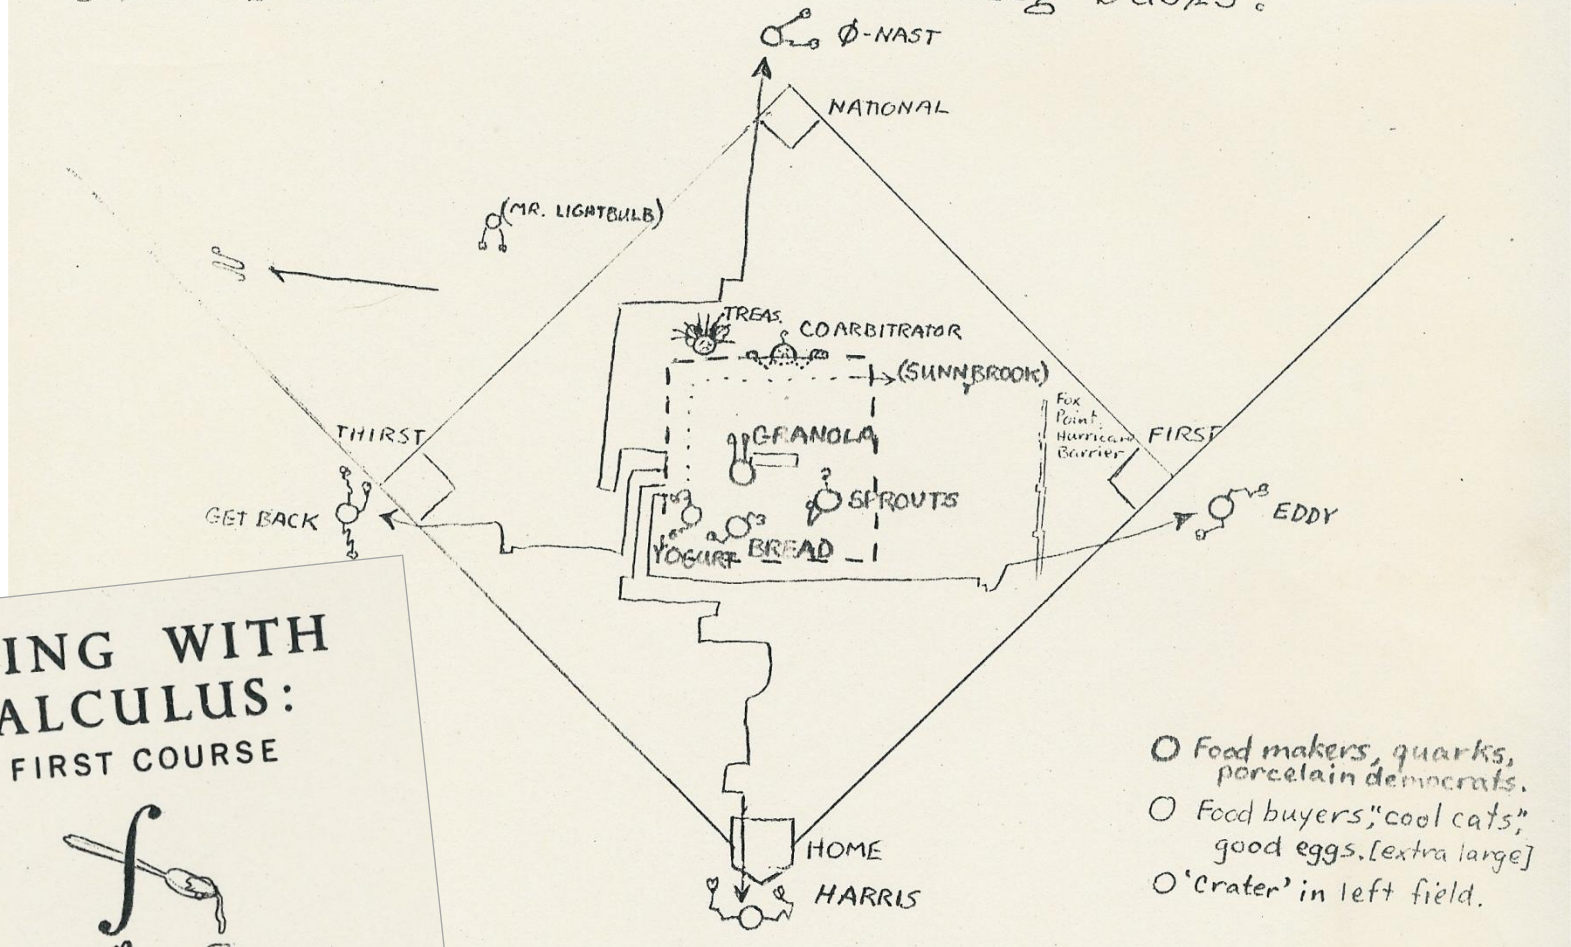 Ø-NAST
NATIONAL
(MR. LIGHTBULB)
TREAS.
COARBITRATOR
(SUNNYBROOK)
Fox
Point
Hurricane
Barrier
THIRST
GRANOLA
FIRST
GET BACK
SPROUTS
EDDY
YOGURT
BREAD
ING WITH
ALCULUS:
FIRST COURSE
∫
HOME
HARRIS
O Food makers, quarks,
porcelain democrats.
O Food buyers, "cool cats",
good eggs. [extra large]
O 'Crater' in left field.